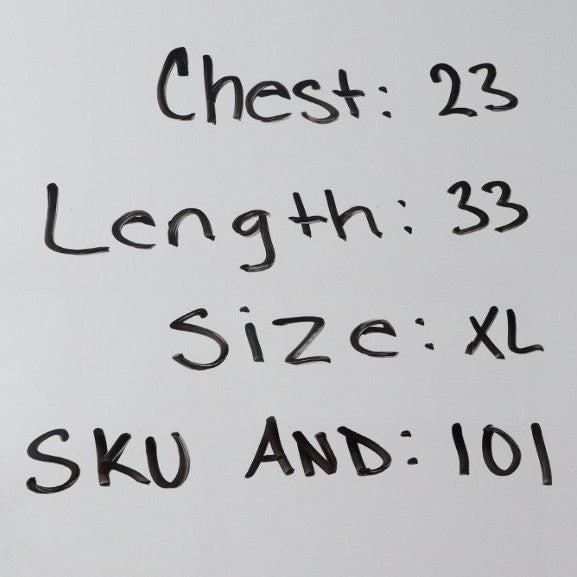 Chest: 23
Length: 33
Size: XL
SKU AND: 101